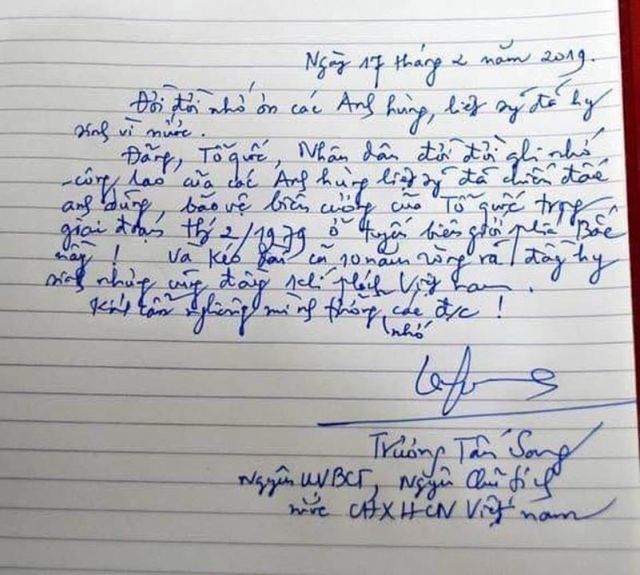 Ngày 17 tháng 2 năm 2019.
Đời đời nhớ ơn các Anh hùng, liệt sỹ đã hy
sinh vì nước.
Đảng, Tổ quốc, Nhân dân đời đời ghi nhớ
công lao của các Anh hùng liệt sỹ đã chiến đấu
anh dũng, bảo vệ biên cương của Tổ quốc trong
giai đoạn th 2/1979 ở tuyến biên giới phía Bắc
này! Và kéo dài cả 10 năm ròng rã đầy hy
sinh nhưng cũng đầy khí phách Việt Nam.
Kính cẩn nghiêng mình tưởng nhớ các đ/c!
Trương Tấn Sang
Nguyên UVBCT, Nguyên Chủ tịch
nước CHXHCN Việt Nam